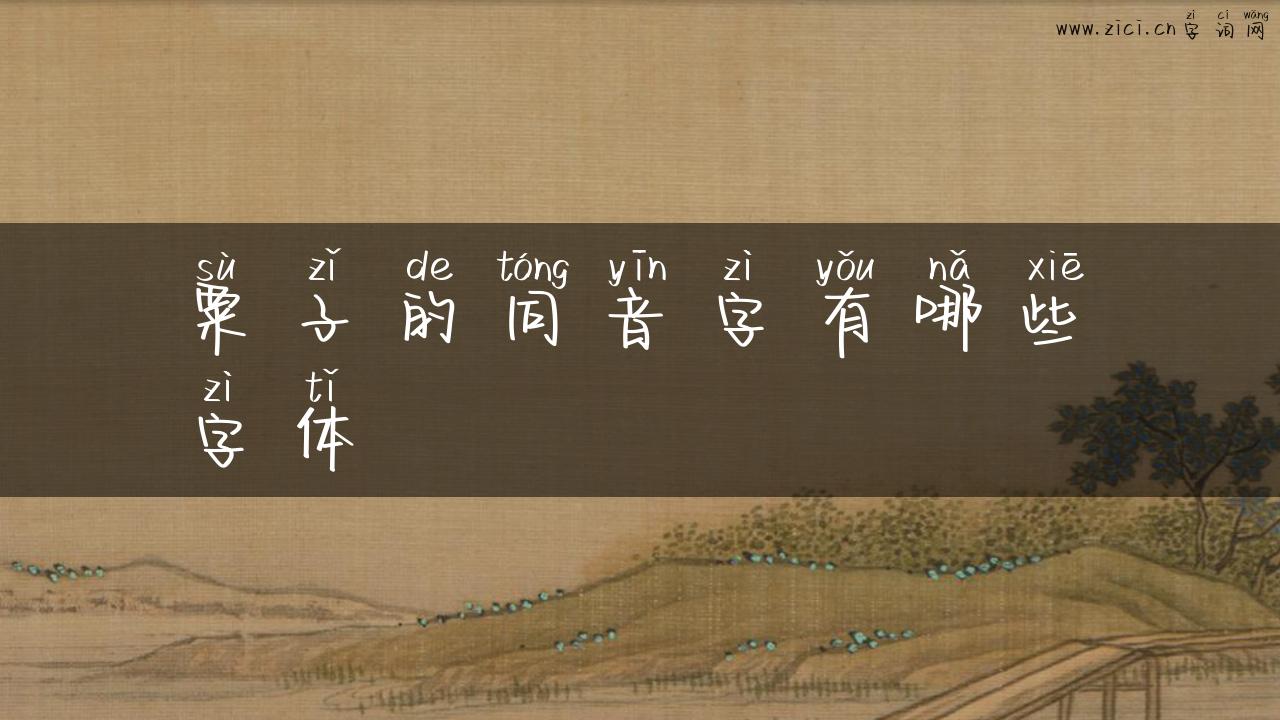 zì cí wǎng
www.zici.cn字词网
sù zǐ de tóng yīn zì yǒu nǎ xiē
粟子的同音字有哪些
zì tǐ
字体